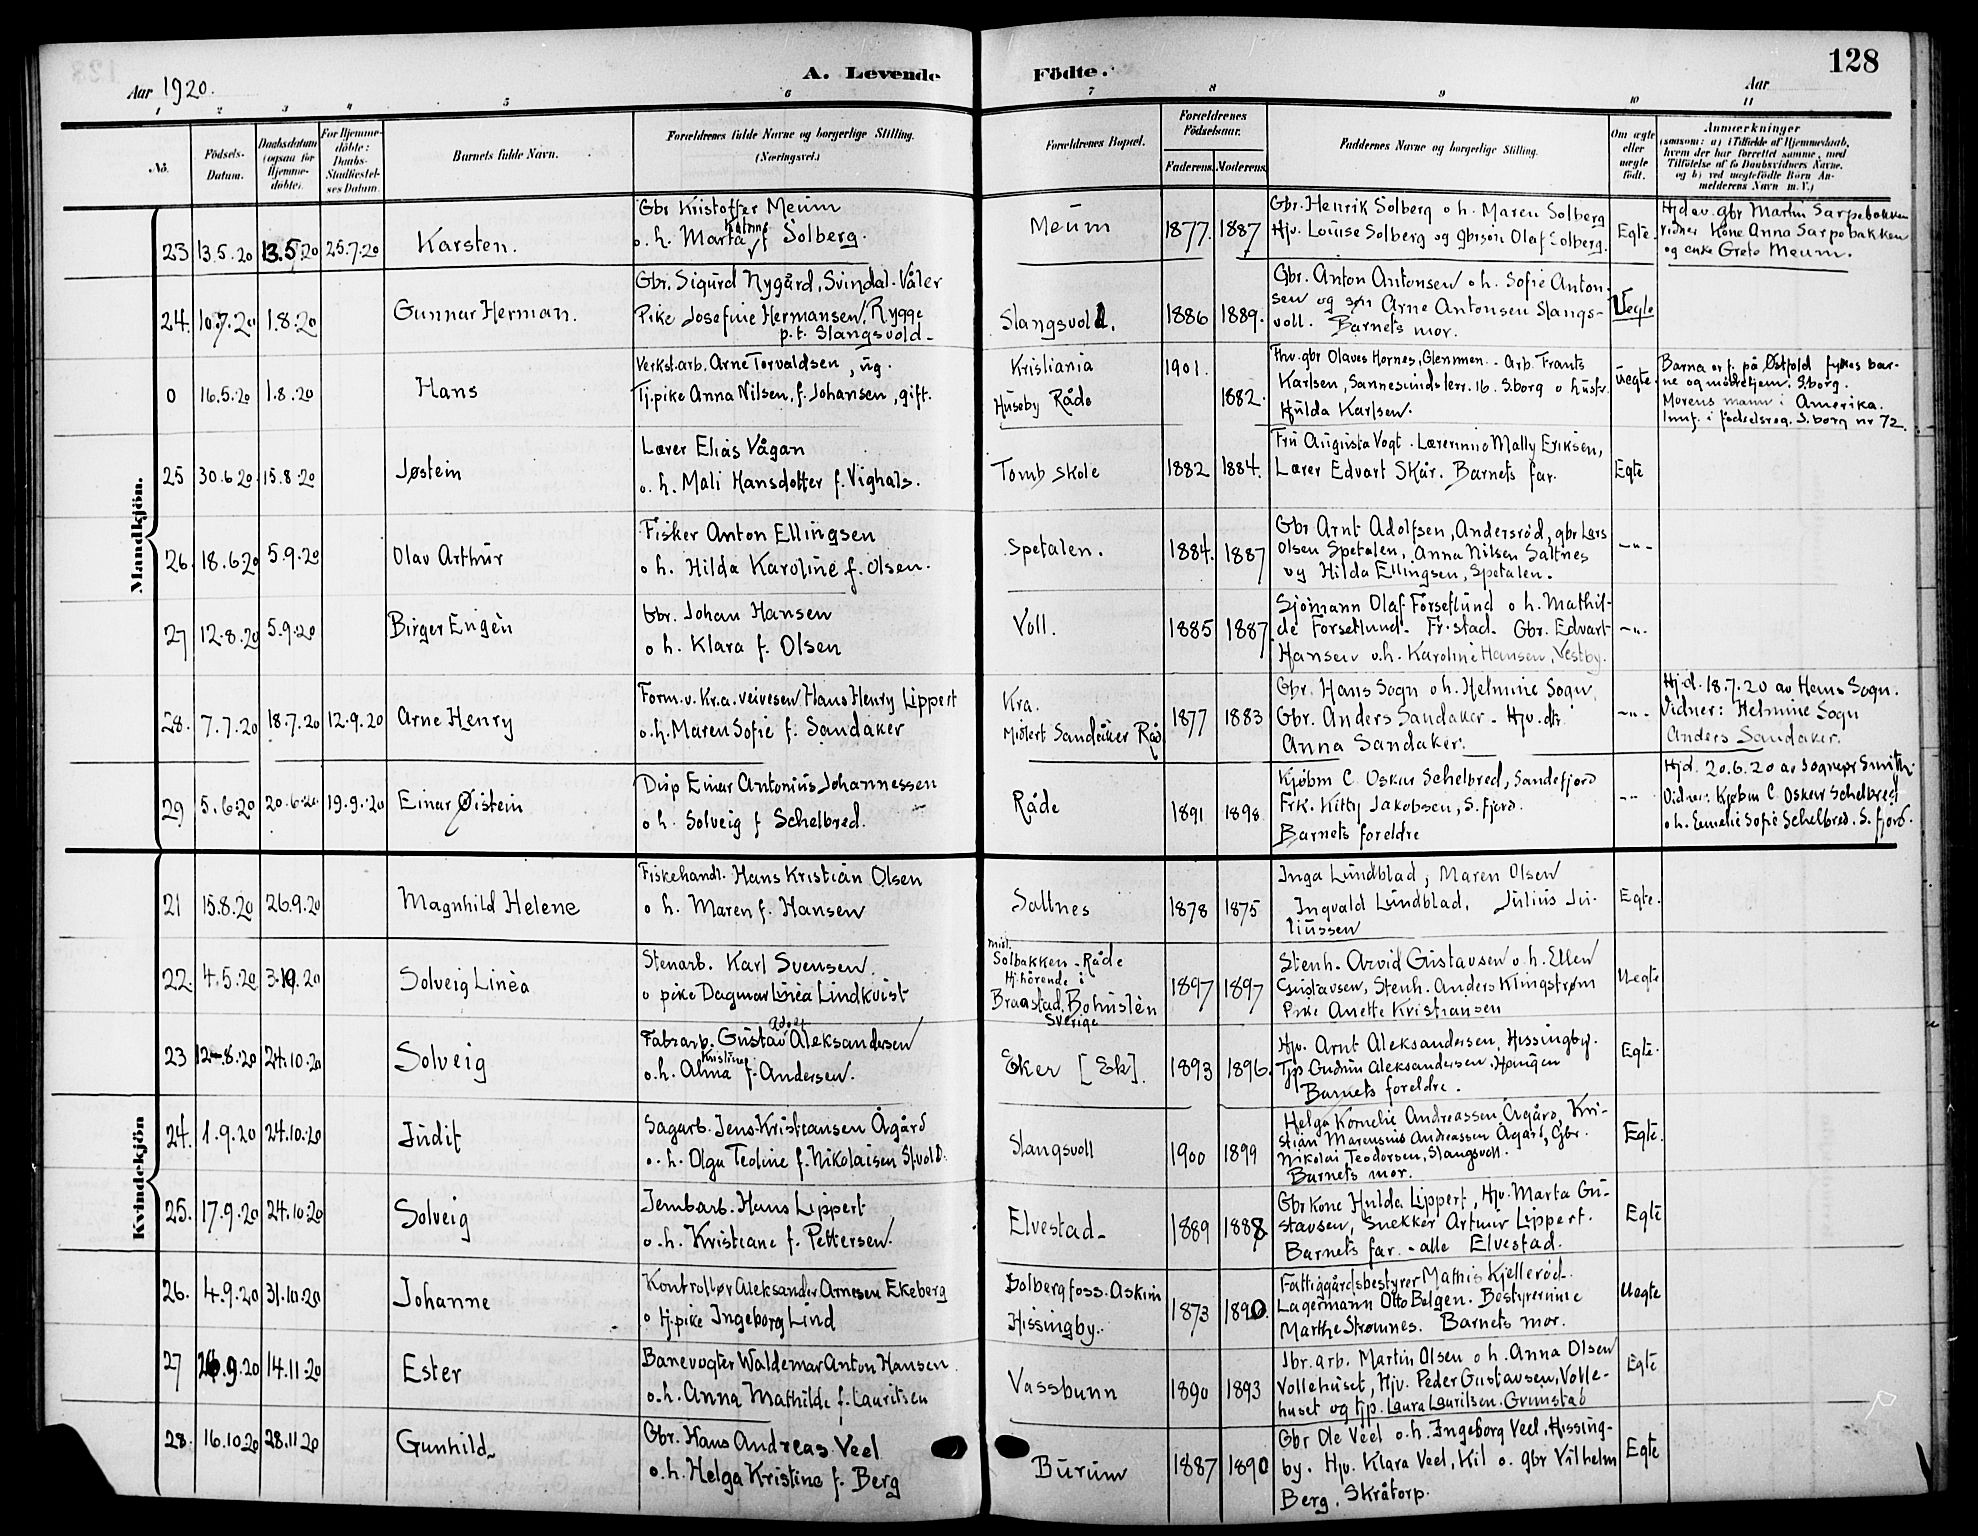 128
Aar 1920.
A. Levende
Födte.
Aar
1 2 3 4 5 6 7 8 9 10 11
No.
Födsels-
Datum.
Daabsdatum
(ogsaa for
Hjemme-
döbte).
For Hjemme-
döbte:
Daabs-
Stadfæstel-
ses Datum.
Barnets fulde Navn.
Forældrenes fulde Navne og borgerlige Stilling.
(Næringsvei.)
Forældrenes Bopæl.
Forældrenes
Födselsaar.
Faderens.
Moderens.
Faddernes Navne og borgerlige Stilling.
Om ægte
eller
uægte
født.
Anmærkninger
(saasom: a) i Tilfælde af Hjemmedaab,
hvem der har forrettet samme, med
Tilföielse af to Daabsvidners Navne.
og b) ved uægtefödte Börn An-
melderens Navn m. V.)
Mandkjön.
23 13.5.20 13.5.20 25.7.20 Karsten.
Gbr Kristoffer Meum
o. h. Marta Katrine f Solberg.
Meum 1877. 1887
Gbr. Henrik Solberg o h. Maren Solberg
Hjv. Louise Solberg og gbrsøn Olaf Solberg.
Egte.
Hjd av. gbr Martin Sarpebakken
vidner kone Anna Sarpebakken
og enke Grete Meum.
24. 10.7.20 1.8.20 Gunnar Herman.
Gbr. Sigurd Nygård, Svindal. Våler
Pike Josefine Hermansen, Rygge
p.t. Slangsvold
Slangsvold. 1886 1889.
Gbr. Anton Antonsen o h. Sofie Anton-
sen og søn Arne Antonsen Slangs-
voll. Barnets mor.
Uegte
0 16.5.20 1.8.20 Hans
Verkst.arb. Arne Torvaldsen, ug.
Tj.pike Anna Nilsen, f. Johansen, gift.
Kristiania 1901.
Huseby Råde 1882.
Fhv. gbr Olaves Hornes, Glemmen. Arb. Frants
Karlsen, Sannesundsterr. 16. S.borg o husfr.
Hulda Karlsen.
uegte.
Barna er f. på Østfold fylkes bar-
ne og mødrehjem. S.borg.
Morens mann i Amerika.
Innf. i fødselsreg. S.borg nr 72.
25 30.6.20 15.8.20 Jøstein
Lærer Elias Vågan
o. h. Mali Hansdotter f. Vighals.
Tomb skole 1882 1884.
Fru Augusta Vogt. Lærerinne Mally Eriksen,
Lærer Edvart Skår. Barnets far.
Egte
26. 18.6.20 5.9.20 Olav Arthur
Fisker Anton Ellingsen
o h. Hilda Karoline f. Olsen.
Spetalen. 1884. 1887
Gbr Arnt Adolfsen, Andersrød, gbr Lars
Olsen Spetalen, Anna Nilsen Saltnes
og Hilda Ellingsen, Spetalen.
-"-
27 12.8.20 5.9.20 Birger Engen
Gbr. Johan Hansen
o h. Klara f. Olsen
Voll. 1885 1887.
Sjømann Olaf Forsetlund o h. Mathil-
de Forsetlund. Fr.stad. Gbr. Edvart
Hansen o.h. Karoline Hansen, Vestby.
-"-
28. 7.7.20 18.7.20 12.9.20 Arne Henry
Form. v. Kr.a. veivesen Hans Henry Lippert
o.h. Maren Sofie f. Sandaker
Kra.
Midlert Sandaker Råd. 1877 1883
Gbr. Hans Sogn o h. Helmine Sogn.
Gbr. Anders Sandaker. Hjv. dtr.
Anna Sandaker.
-"-
Hj.d. 18.7.20 av Hans Sogn.
Vidner: Helmine Sogn
Anders Sandaker.
29 5.6.20 20.6.20 19.9.20 Einar Øistein
Disp Einar Antonius Johannessen
o h. Solveig f Schelbred.
Råde 1891 1898
Kjøbm C. Oskar Schelbred, Sandefjord
Frk. Kitty Jakobsen, S. fjord.
Barnets foreldre
-"-
Hjd. 20.6.20 av Sognepr Smith.
Vidner: Kjøbm C Oskar Schelbred
o h. Emelie Sofie Schelbred. S. fjord.
Kvindekjön
21 15.8.20 26.9.20 Magnhild Helene
Fiskehandl. Hans Kristian Olsen
o h. Maren f. Hansen
Saltnes 1878 1875
Inga Lundblad, Maren Olsen
Ingvald Lundblad, Julius Ju-
liussen
Egte.
22. 4.5.20 3.10.20 Solveig Linèa
Stenarb. Karl Svensen.
o pike Dagmar Linèa Lindkvist
midl.
Solbakken - Råde
Hj.hörende i
Braastad. Bohuslèn
Sverige
1897 1897
Stenh. Arvid Gustavsen o. h. Ellen
Gustavsen, Stenh. Anders Klingstrøm
Pike Anette Kristiansen
Uegte
23 12.8.20 24.10.20 Solveig
Fabrarb. Gustav Adolf Aleksandersen
o. h. Alma Kristine f. Andersen.
Eker [Ek]. 1893 1896.
Hjv. Arnt Aleksandersen, Hissingby.
Tjp Gudrun Aleksandersen. Haugen
Barnets foreldre.
Egte.
24. 1.9.20 24.10.20 Judit
Sagarb. Jens Kristiansen Ågård
o. h. Olga Teoline f. Nikolaisen Sl.vold.
Slangsvoll 1900 1899
Helga Kornelie Andreassen Ågård, Kri-
stian Marensius Andreassen Ågård, Gbr.
Nikolai Teodorsen, Slangsvoll.
Barnets mor.
Egte.
25. 17.9.20 24.10.20 Solveig
Jernbarb. Hans Lippert
o. h. Kristiane f. Pettersen.
Elvestad. 1889 1888
Gbrkone Hulda Lippert, Hjv. Marta Gu-
stavsen, Snekker Artur Lippert.
Barnets far. - alle Elvestad.
Egte
26. 4.9.20 31.10.20 Johanne
Kontrollør Aleksander Arnesen Ekeberg
o tj.pike Ingeborg Lind
Solbergfoss. Askim
Hissingby. 1873 1890.
Fattiggårdsbestyrer Mathis Kjellerød.
Lagermann Otto Belgen. Bestyrerinne
Marthe Strømnes. Barnets mor.
Uegte
27 26.9.20 14.11.20 Ester
Banevogter Waldemar Anton Hansen
o. h. Anna Mathilde f. Lauritsen
Vassbunn 1890 1893
Jbr. arb. Martin Olsen o h. Anna Olsen
Vollehuset, Hjv. Peder Gustavsen, Volle-
huset og tjp. Laura Lauritsen. Grimstad
Egte
28. 16.10.20 28.11.20 Gunhild
Gbr. Hans Andreas Veel
o. h. Helga Kristine f. Berg
Burum 1887 1890
Gbr Ole Veel o. h. Ingeborg Veel, Hissing-
by. Hjv. Klara Veel, Kil o. gbr Vilhelm
Berg, Skråtorp.
Egte